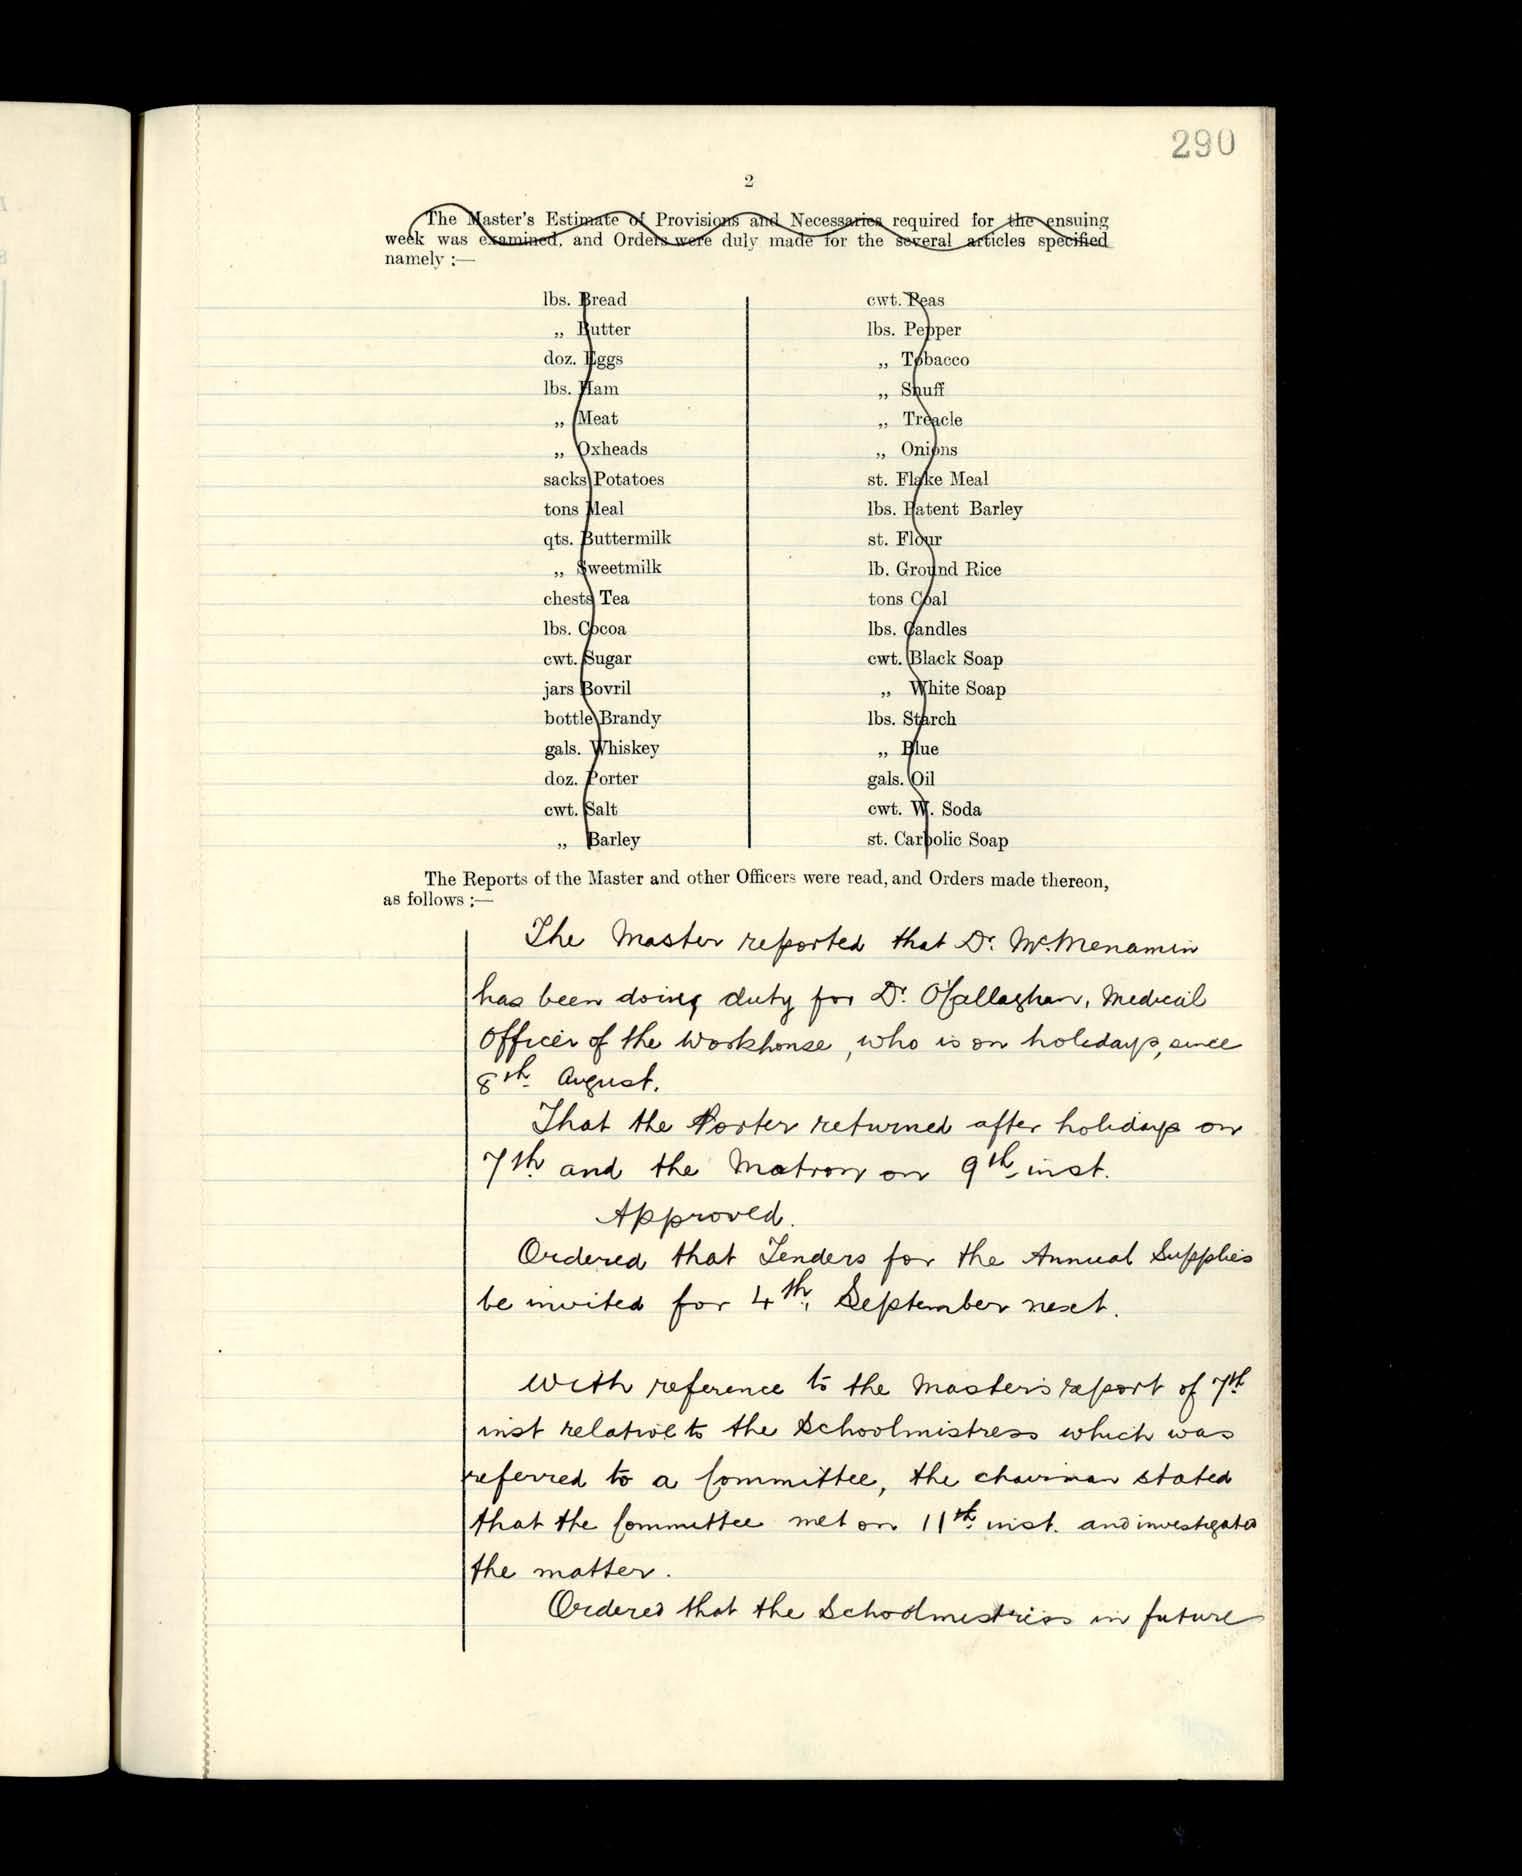 290
2
The Master's Estimate of Provisions and Necessaries required for the ensuing
week was examined, and Orders were duly made for the several articles specified
namely :—
lbs. Bread
„ Butter
doz. Eggs
lbs. Ham
„ Meat
„ Oxheads
sacks Potatoes
tons Meal
qts. Buttermilk
„ Sweetmilk
chests Tea
lbs. Cocoa
cwt. Sugar
jars Bovril
bottle Brandy
gals. Whiskey
doz. Porter
cwt. Salt
„ Barley
cwt. Peas
lbs. Pepper
„ Tobacco
„ Snuff
„ Treacle
„ Onions
st. Flake Meal
lbs. Patent Barley
st. Flour
lb. Ground Rice
tons Coal
lbs. Candles
cwt. Black Soap
„ White Soap
lbs. Starch
„ Blue
gals. Oil
cwt. W. Soda
st. Carbolic Soap
The Reports of the Master and other Officers were read, and Orders made thereon,
as follows :—
The Master reported that Dr. McMenamin
has been doing duty for Dr. O'Callaghan, Medical
Officer of the Workhouse, who is on holidays, since
8th August.
That the Porter returned after holidays on
7th and the Matron on 9th inst.
Approved.
Ordered that Tenders for the Annual Supplies
be invited for 4th September next.
With reference to the Master's report of 7th
inst relative to the Schoolmistress which was
referred to a Committee, the chairman stated
that the Committee met on 11th inst. and investigated
the matter.
Ordered that the Schoolmistress in future